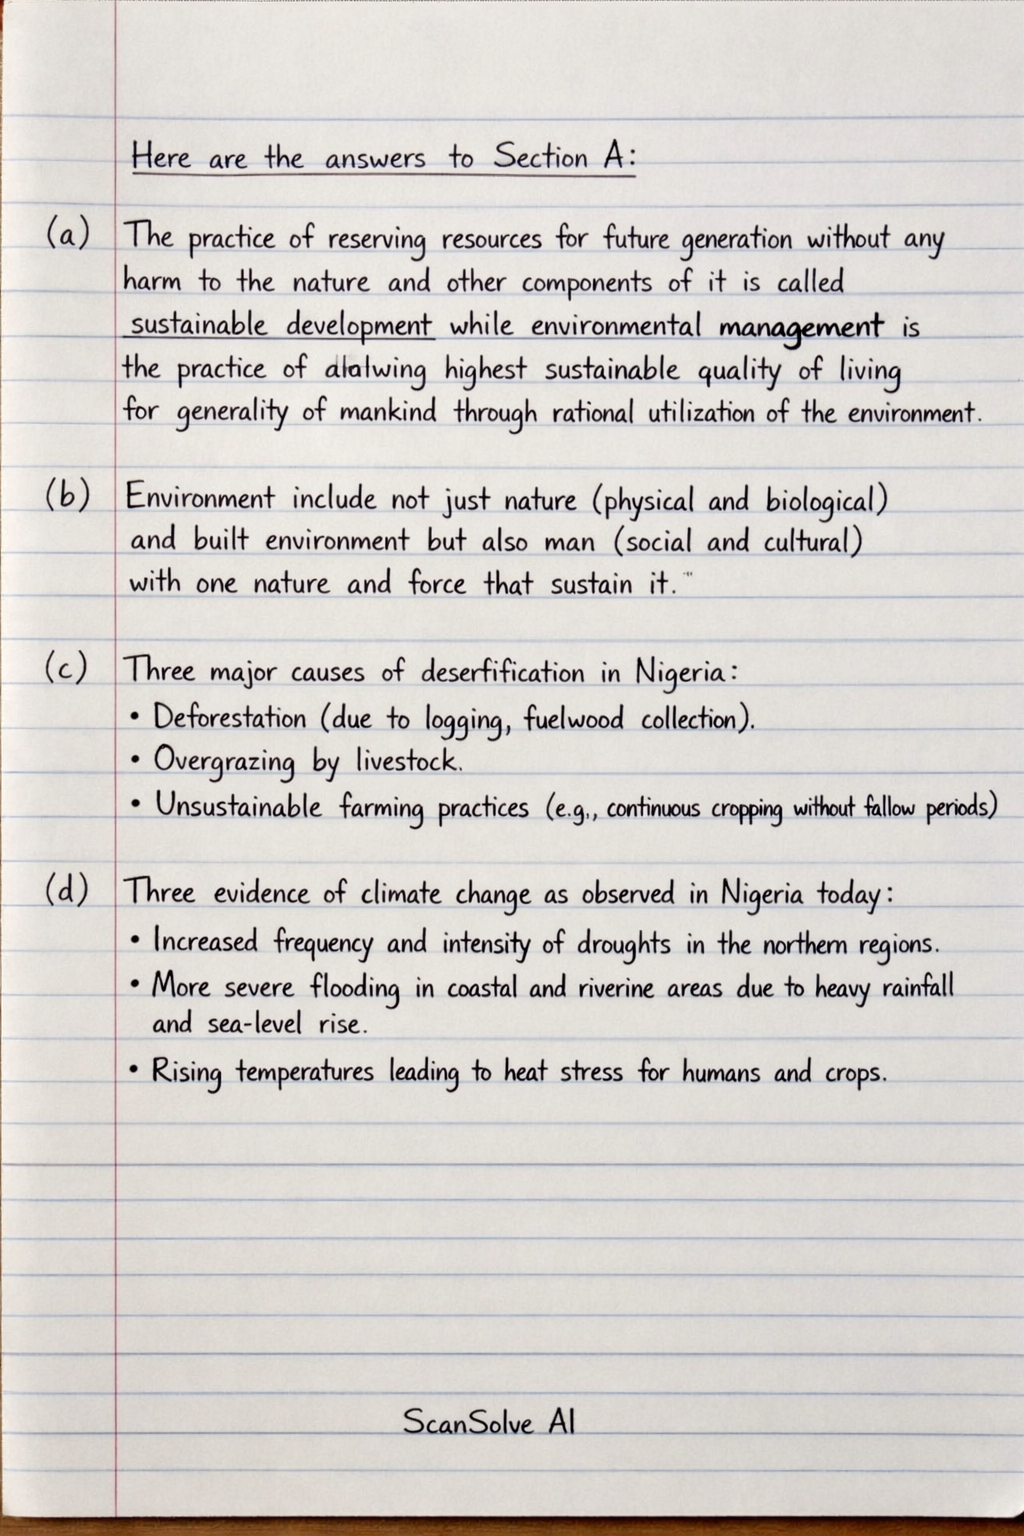 Here are the answers to Section A:
(a) The practice of reserving resources for future generation without any
harm to the nature and other components of it is called
sustainable development while environmental management is
the practice of highest sustainable quality of living
for generality of mankind through rational utilization of the environment.
(b) Environment include not just nature (physical and biological)
and built environment but also man (social and cultural)
with one nature and force that sustain it.
(c) Three major causes of deserfification in Nigeria:
• Deforestation (due to logging, fuelwood collection).
• Overgrazing by livestock.
• Unsustainable farming practices (e.g., continuous cropping without fallow periods)
(d) Three evidence of climate change as observed in Nigeria today:
• Increased frequency and intensity of droughts in the northern regions.
• More severe flooding in coastal and riverine areas due to heavy rainfall
and sea-level rise.
• Rising temperatures leading to heat stress for humans and crops.
ScanSolve AI